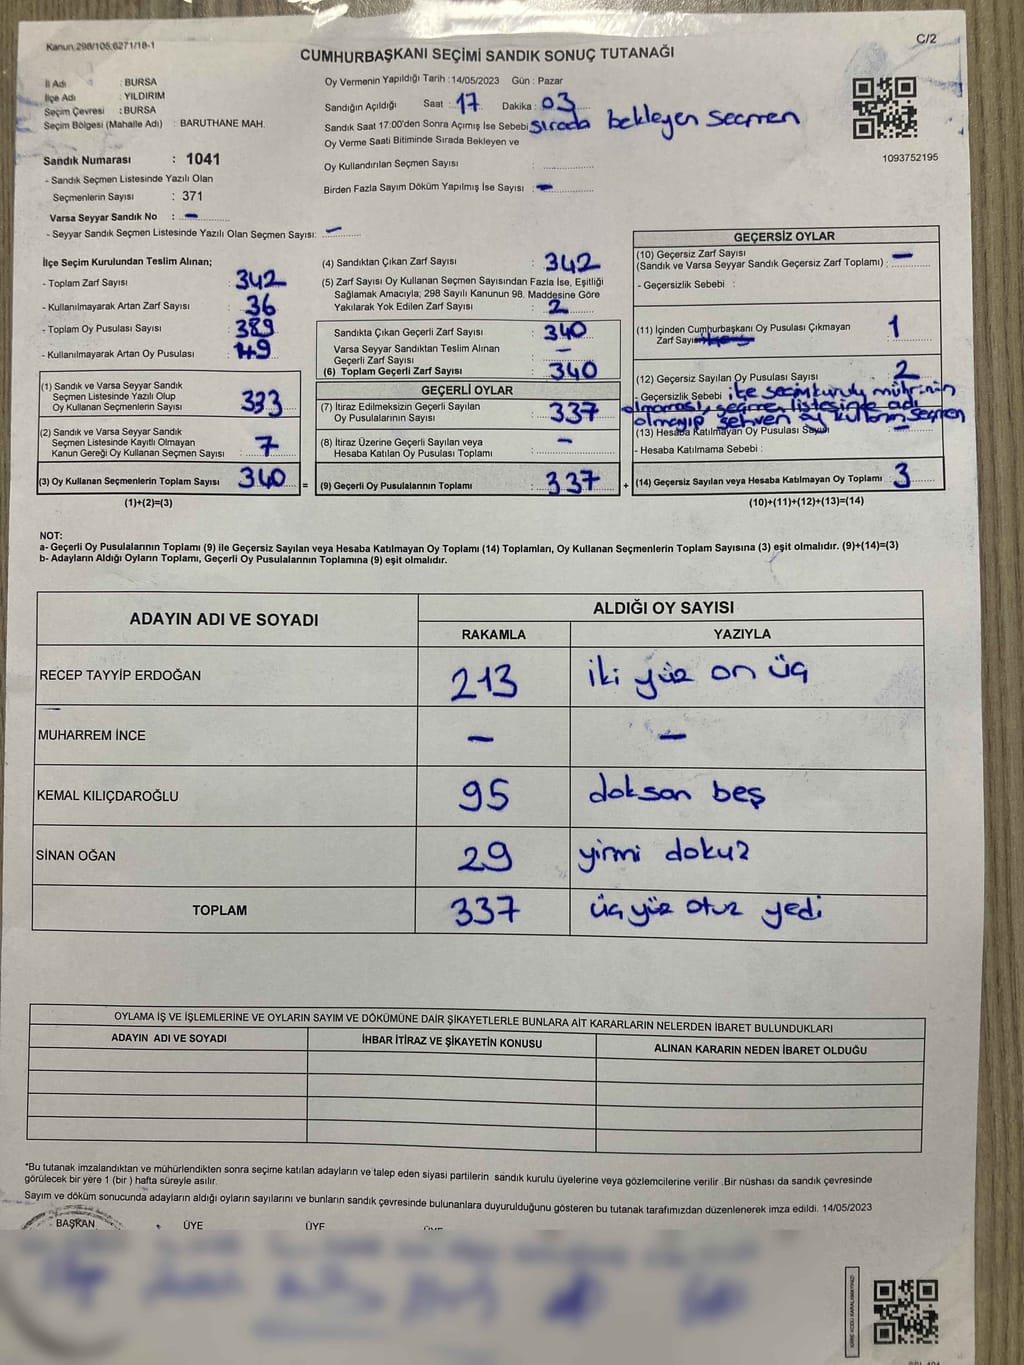 Kanun 298/105.6271/18-1
C/2
CUMHURBAŞKANI SEÇİMİ SANDIK SONUÇ TUTANAĞI
İl Adı : BURSA
İlçe Adı : YILDIRIM
Seçim Çevresi : BURSA
Seçim Bölgesi (Mahalle Adı) : BARUTHANE MAH.
Sandık Numarası : 1041
- Sandık Seçmen Listesinde Yazılı Olan
Seçmenlerin Sayısı : 371
Varsa Seyyar Sandık No : -
- Seyyar Sandık Seçmen Listesinde Yazılı Olan Seçmen Sayısı: -
Oy Vermenin Yapıldığı Tarih : 14/05/2023 Gün : Pazar
Sandığın Açıldığı Saat : 17 Dakika : 03
Sandık Saat 17:00'den Sonra Açımış İse Sebebi sırada bekleyen seçmen
Oy Verme Saati Bitiminde Sırada Bekleyen ve
Oy Kullandırılan Seçmen Sayısı :
Birden Fazla Sayım Döküm Yapılmış İse Sayısı : -
1093752195
İlçe Seçim Kurulundan Teslim Alınan;
- Toplam Zarf Sayısı : 342
- Kullanılmayarak Artan Zarf Sayısı : 36
- Toplam Oy Pusulası Sayısı : 389
- Kullanılmayarak Artan Oy Pusulası : 49
(1) Sandık ve Varsa Seyyar Sandık
Seçmen Listesinde Yazılı Olup
Oy Kullanan Seçmenlerin Sayısı : 333
(2) Sandık ve Varsa Seyyar Sandık
Seçmen Listesinde Kayıtlı Olmayan
Kanun Gereği Oy Kullanan Seçmen Sayısı : 7
(3) Oy Kullanan Seçmenlerin Toplam Sayısı : 340 =
(1)+(2)=(3)
(4) Sandıktan Çıkan Zarf Sayısı : 342
(5) Zarf Sayısı Oy Kullanan Seçmen Sayısından Fazla İse, Eşitliği
Sağlamak Amacıyla; 298 Sayılı Kanunun 98. Maddesine Göre
Yakılarak Yok Edilen Zarf Sayısı : 2
Sandıkta Çıkan Geçerli Zarf Sayısı : 340
Varsa Seyyar Sandıktan Teslim Alınan
Geçerli Zarf Sayısı : -
(6) Toplam Geçerli Zarf Sayısı : 340
GEÇERLİ OYLAR
(7) İtiraz Edilmeksizin Geçerli Sayılan
Oy Pusulalarının Sayısı : 337
(8) İtiraz Üzerine Geçerli Sayılan veya
Hesaba Katılan Oy Pusulası Toplamı : -
(9) Geçerli Oy Pusulalarının Toplamı : 337 +
GEÇERSİZ OYLAR
(10) Geçersiz Zarf Sayısı
(Sandık ve Varsa Seyyar Sandık Geçersiz Zarf Toplamı) : -
- Geçersizlik Sebebi :
(11) İçinden Cumhurbaşkanı Oy Pusulası Çıkmayan
Zarf Sayısı 1
(12) Geçersiz Sayılan Oy Pusulası Sayısı : 2
- Geçersizlik Sebebi ilçe seçim kurulu mührünün
olmaması, seçmen listesinde adı
olmayıp sehven oy kullanan seçmen
(13) Hesaba Katılmayan Oy Pusulası Sayısı -
- Hesaba Katılmama Sebebi :
(14) Geçersiz Sayılan veya Hesaba Katılmayan Oy Toplamı : 3
(10)+(11)+(12)+(13)=(14)
NOT:
a- Geçerli Oy Pusulalarının Toplamı (9) ile Geçersiz Sayılan veya Hesaba Katılmayan Oy Toplamı (14) Toplamları, Oy Kullanan Seçmenlerin Toplam Sayısına (3) eşit olmalıdır. (9)+(14)=(3)
b- Adayların Aldığı Oyların Toplamı, Geçerli Oy Pusulalarının Toplamına (9) eşit olmalıdır.
ADAYIN ADI VE SOYADI ALDIĞI OY SAYISI
RAKAMLA YAZIYLA
RECEP TAYYİP ERDOĞAN 213 iki yüz on üç
MUHARREM İNCE - -
KEMAL KILIÇDAROĞLU 95 doksan beş
SİNAN OĞAN 29 yirmi dokuz
TOPLAM 337 üç yüz otuz yedi
OYLAMA İŞ VE İŞLEMLERİNE VE OYLARIN SAYIM VE DÖKÜMÜNE DAİR ŞİKAYETLERLE BUNLARA AİT KARARLARIN NELERDEN İBARET BULUNDUKLARI
ADAYIN ADI VE SOYADI İHBAR İTİRAZ VE ŞİKAYETİN KONUSU ALINAN KARARIN NEDEN İBARET OLDUĞU
*Bu tutanak imzalandıktan ve mühürlendikten sonra seçime katılan adayların ve talep eden siyasi partilerin sandık kurulu üyelerine veya gözlemcilerine verilir .Bir nüshası da sandık çevresinde
görülecek bir yere 1 (bir ) hafta süreyle asılır.
Sayım ve döküm sonucunda adayların aldığı oyların sayılarını ve bunların sandık çevresinde bulunanlara duyurulduğunu gösteren bu tutanak tarafımızdan düzenlenerek imza edildi. 14/05/2023
BAŞKAN ÜYE ÜYE